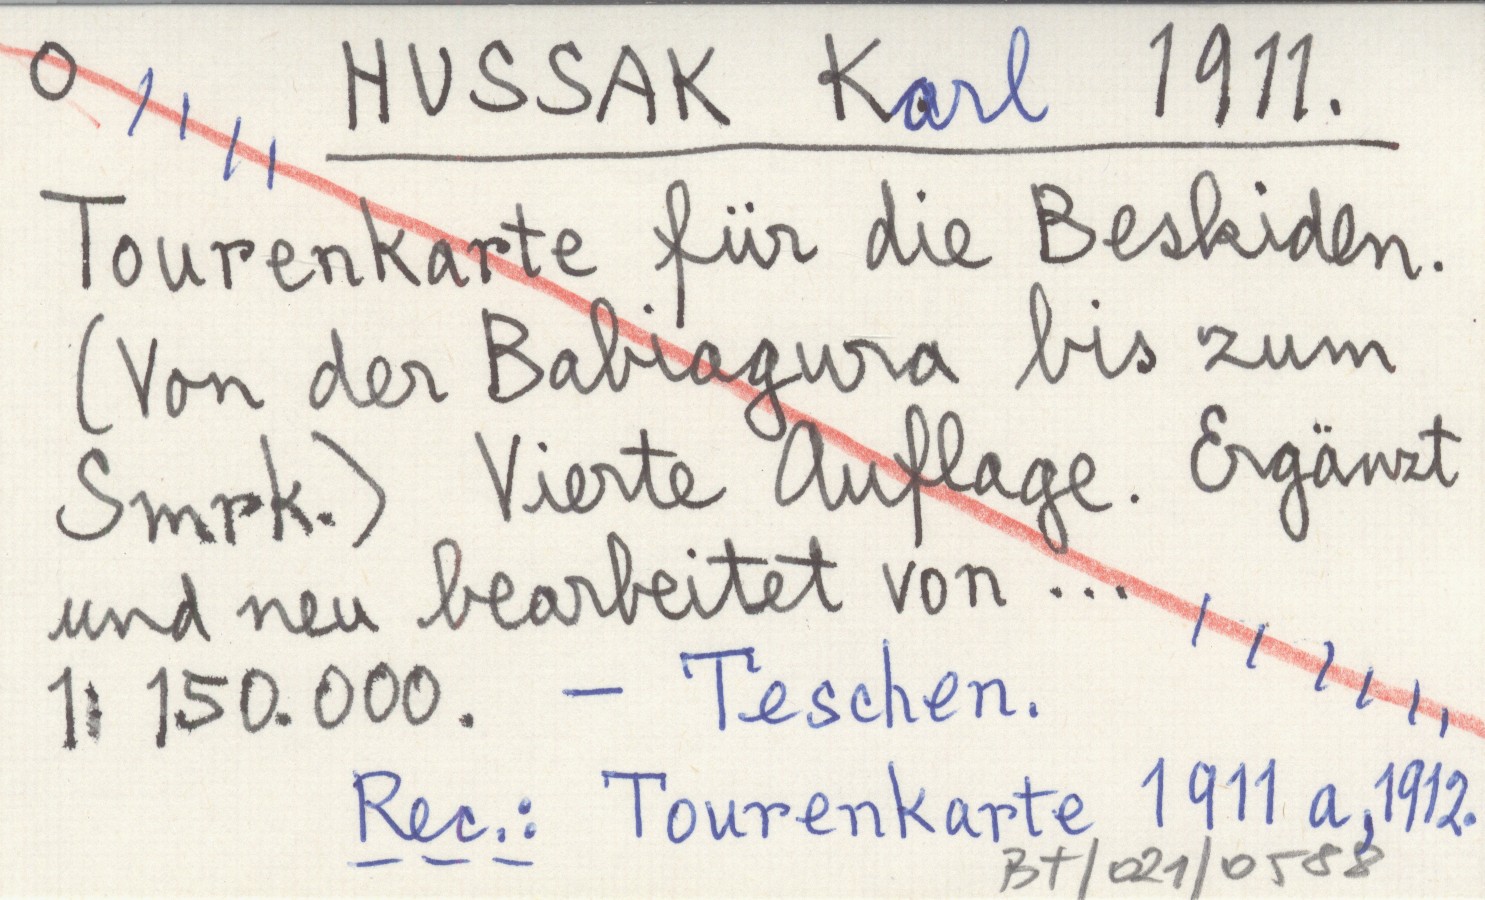 O HUSSAK Karl 1911.
Tourenkarte für die Beskiden.
(Von der Babiagura bis zum
Smrk.) Vierte Auflage. Ergänzt
und neu bearbeitet von ...
1: 150.000. – Teschen.
Rec.: Tourenkarte 1911 a, 1912.
BT/021/0588